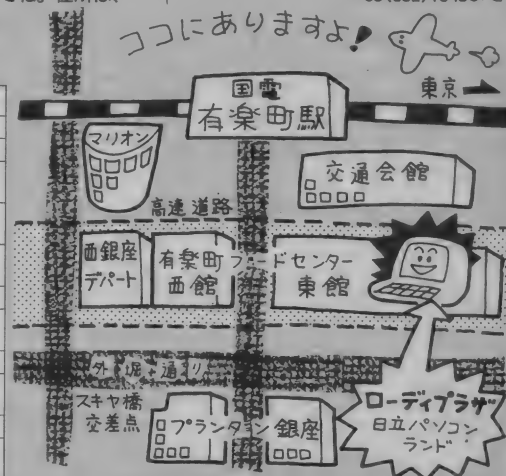 ココにありますよ!
東京
国電
有楽町駅
マリオン
交通会館
高速道路
西銀座
デパート
有楽町フードセンター
西館
東館
外堀通り
スキヤ橋
交差点
プランタン銀座
ローディプラザ
日立パソコン
ランド